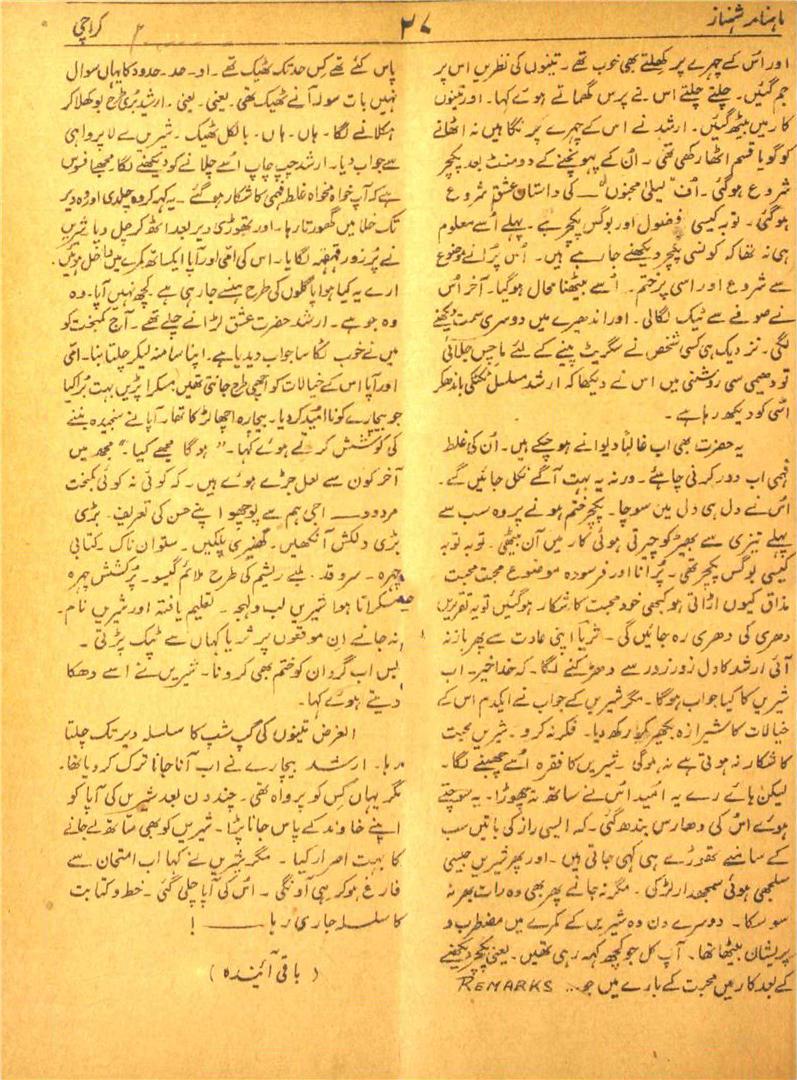 ماہنامہ شہناز
۲۷
کراچی
اور اُس کے چہرے پر کھِلتے بھی خوب تھے ۔ تینوں کی نظریں اس پر
جم گئیں ۔ چلتے چلتے اس نے پرس گھماتے ہوئے کہا ۔ اور تینوں
کار میں بیٹھ گئیں ۔ ارشد نے اس کے چہرے پر نگاہیں نہ اٹھانے
کو گویا قسم اٹھا رکھی تھی ۔ اُن کے پہونچنے کے دو منٹ بعد پکچر
شروع ہوگئی ۔ اُف "لیلیٰ مجنوں" ۔ کی داستانِ عشق شروع
ہوگئی ۔ توبہ کیسی فضول اور بوگس پکچر ہے ۔ پہلے اُسے معلوم
ہی نہ تھا کہ کونسی پکچر دیکھنے جارہے ہیں ۔ اُس پُرانے موضوع
سے شروع اور اسی پر ختم ۔ اُسے بیٹھنا محال ہوگیا۔ آخر اُس
نے صوفے سے ٹیک لگالی ۔ اور اندھیرے میں دوسری سمت دیکھنے
لگی ۔ نزدیک ہی کسی شخص نے سگریٹ پینے کے لئے ماچس جلائی
تو دھیمی سی روشنی میں اس نے دیکھا کہ ارشد مسلسل ٹکٹکی باندھکر
اسی کو دیکھ رہا ہے ۔
یہ حضرت بھی اب غالباً دیوانے ہو چکے ہیں ۔ اُن کی غلط
فہمی اب دور کرنی چاہئے ۔ ورنہ یہ بہت آگے نکل جائیں گے ۔
اُس نے دل ہی دل میں سوچا ۔ پکچر ختم ہونے پر وہ سب سے
پہلے تیزی سے بھیڑ کو چیرتی ہوئی کار میں آن بیٹھی ۔ توبہ توبہ
کیسی بوگس پکچر تھی ۔ پُرانا اور فرسودہ موضوع محبت محبت
مذاق کیوں اڑاتی ہو کبھی خود محبت کا شکار ہوگئیں تو یہ تقریریں
دھری کی دھری رہ جائیں گی ۔ ثریا اپنی عادت سے پھر باز نہ
آئی ارشد کا دل زور زور سے دھڑکنے لگا ۔ کہ خدا خیر ۔ اب
شیریں کا کیا جواب ہوگا ۔ مگر شیریں کے جواب نے ایکدم اس کے
خیالات کا شیرازہ بکھیر کر رکھ دیا ۔ فکر نہ کرو ۔ شیریں محبت
کا شکار نہ ہوتی ہے نہ ہوگی ۔ شیریں کا فقرہ اُسے چبھنے لگا ۔
لیکن ہائے رے یہ اُمید اُس نے ساتھ نہ چھوڑا ۔ یہ سوچتے
ہوئے اُس کی ڈھارس بندھ گئی ۔ کہ ایسی راز کی باتیں سب
کے سامنے تھوڑے ہی کہی جاتی ہیں ۔ اور پھر شیریں جیسی
سلجھی ہوئی سمجھدار لڑکی ۔ مگر نہ جانے پھر بھی وہ رات بھر نہ
سو سکا ۔ دوسرے دن وہ شیریں کے کمرے میں مضطرب و
پریشان بیٹھا تھا ۔ آپ کل جو کچھ کہہ رہی تھیں ۔ یعنی پکچر دیکھنے
کے بعد کار میں محبت کے بارے میں جو ... REMARKS
پاس کئے تھے کس حد تک ٹھیک تھے ۔ او ۔ حد ۔ حدود کا یہاں سوال
نہیں بات سولہ آنے ٹھیک تھی ۔ یعنی ۔ یعنی ۔ ارشد بُری طرح بوکھلا کر
ہکلانے لگا ۔ ہاں ۔ ہاں ۔ بالکل ٹھیک ۔ شیریں نے لاپرواہی
سے جواب دیا ۔ ارشد چپ چاپ اُسے چلانے کو دیکھنے لگا مجھے افسوس
ہے کہ آپ خواہ مخواہ غلط فہمی کا شکار ہوگئے ۔ یہ کہہ کر وہ چلدی اور وہ دیر
تک خلا میں گھورتا رہا ۔ اور تھوڑی دیر بعد اٹھ کر چل دیا شیریں
نے پُر زور قہقہہ لگایا ۔ اس کی امّی اور آپا ایکساتھ کمرے میں داخل ہوئیں ۔
ارے یہ کیا ہوا پاگلوں کی طرح ہنسے جارہی ہے کچھ نہیں آپا ۔ وہ
وہ جو ہے ۔ ارشد حضرت عشق لڑانے چلے تھے ۔ آج کمبخت کو
میں نے خوب ٹکا سا جواب دیدیا ہے ۔ اپنا سا منہ لیکر چلتا بنا ۔ امّی
اور آپا اس کے خیالات کو اچھی طرح جانتی تھیں مسکرا پڑیں بہت بُرا کیا
جو بیچارے کو نا اُمید کر دیا ۔ بیچارہ اچھا لڑکا تھا ۔ آپا نے سنجیدہ بننے
کی کوشش کرتے ہوئے کہا ۔ "ہوگا مجھے کیا" ۔ مجھ میں
آخر کون سے لعل جڑے ہوئے ہیں ۔ کہ کوئی نہ کوئی کمبخت
مردود —— اجی ہم سے پوچھو اپنے حسن کی تعریف ۔ بڑی
بڑی دلکش آنکھیں ۔ گھنیری پلکیں ۔ ستواں ناک ۔ کتابی
چہرہ ۔ سرو قد ۔ لمبے ریشم کی طرح ملائم گیسو ۔ پُر کشش چہرہ
مسکراتا ہوا شیریں لب و لہجہ ۔ تعلیم یافتہ اور شیریں نام ۔
نہ جانے اِن موقعوں پر ثریا کہاں سے ٹپک پڑتی ۔
بس اب گردان کو ختم بھی کرو نا ۔ شیریں نے اسے دھکا
دیتے ہوئے کہا ۔
الغرض تینوں کی گپ شپ کا سلسلہ دیر تک چلتا
رہا ۔ ارشد بیچارے نے اب آنا جانا ترک کر دیا تھا ۔
مگر یہاں کس کو پرواہ تھی ۔ چند دن بعد شیریں کی آپا کو
اپنے خاوند کے پاس جانا پڑا ۔ شیریں کو بھی ساتھ لے جانے
کا بہت اصرار کیا ۔ مگر شیریں نے کہا اب امتحان سے
فارغ ہوکر ہی آونگی ۔ اُس کی آپا چلی گئی ۔ خط و کتابت
کا سلسلہ جاری رہا —— !
( باقی آئیندہ )